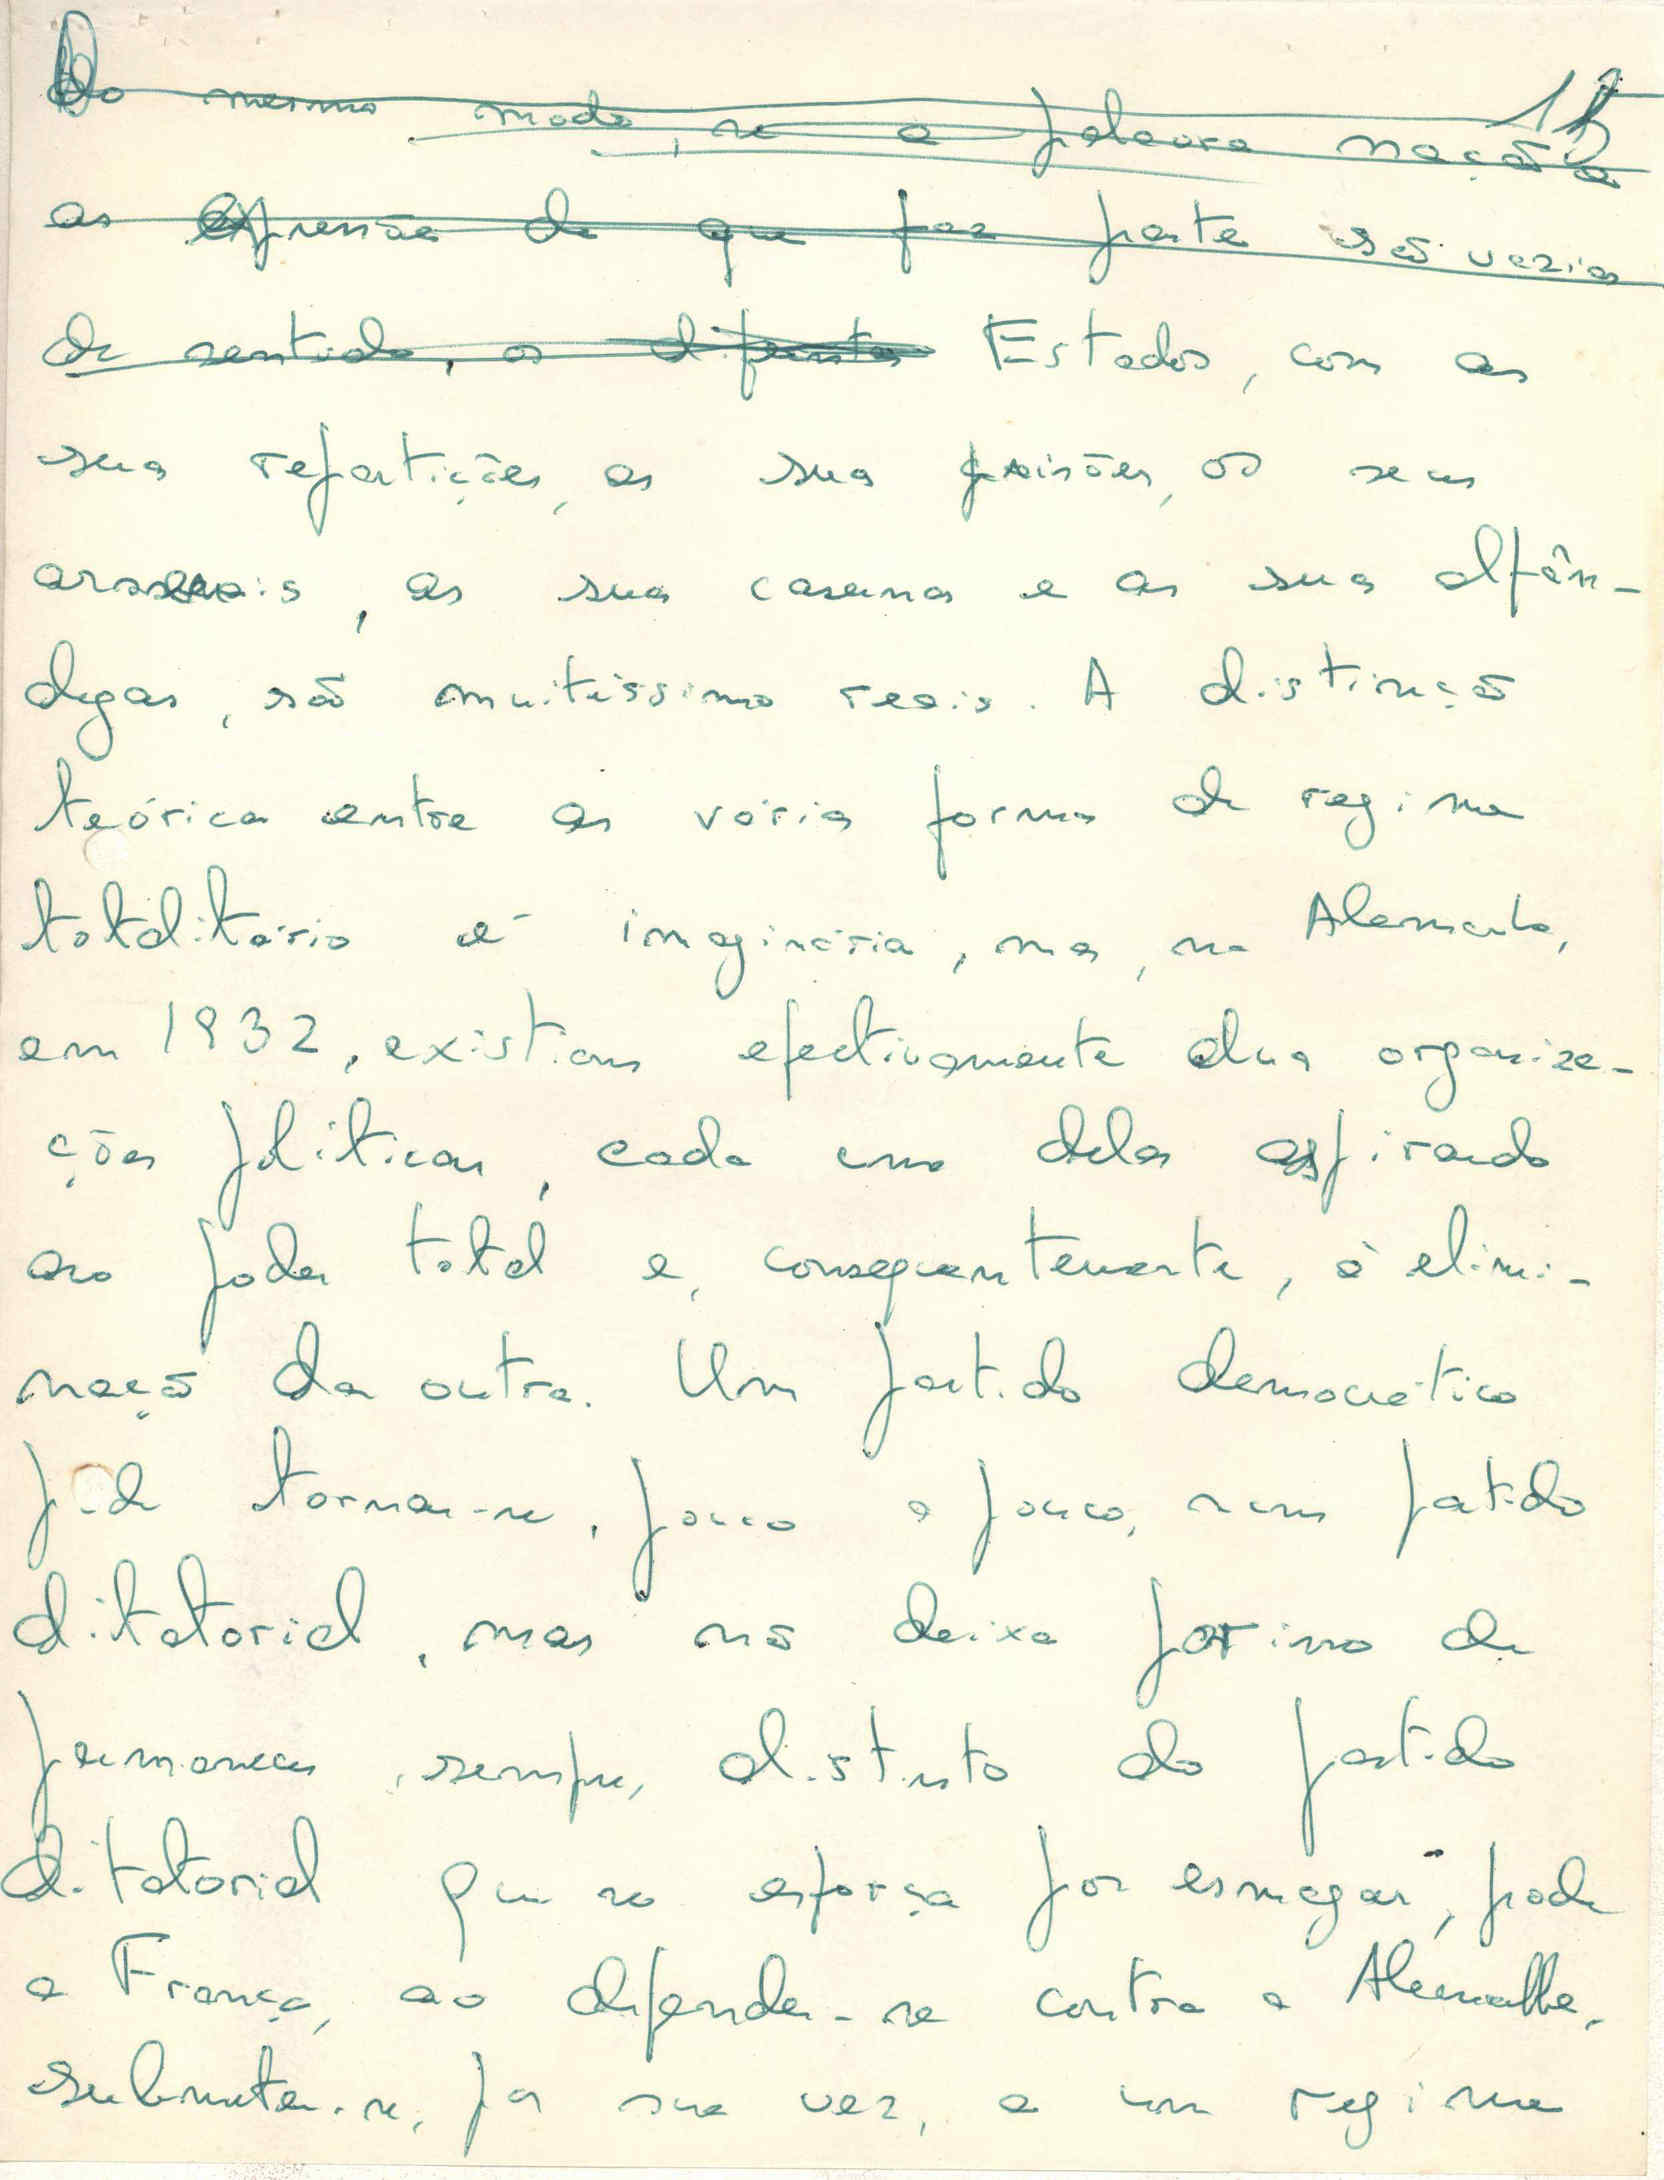 15
Do mesmo modo, se a palavra nação e
as expressões de que faz parte são vazias
de sentido, os diferentes Estados, com as
suas repartições, as suas prisões, os seus
arsenais, as suas casernas e as suas alfân-
degas, são muitíssimo reais. A distinção
teórica entre as várias formas de regime
totalitário é imaginária, mas, na Alemanha,
em 1932, existiam efectivamente duas organiza-
ções políticas, cada uma delas aspirando
ao poder total e, consequentemente, à elimi-
nação da outra. Um partido democrático
pode tornar-se, pouco a pouco, num partido
ditatorial, mas não deixa por isso de
permanecer, sempre, distinto do partido
ditatorial que se esforça por esmagar; pode
a França, ao defender-se contra a Alemanha,
submeter-se, por sua vez, a um regime